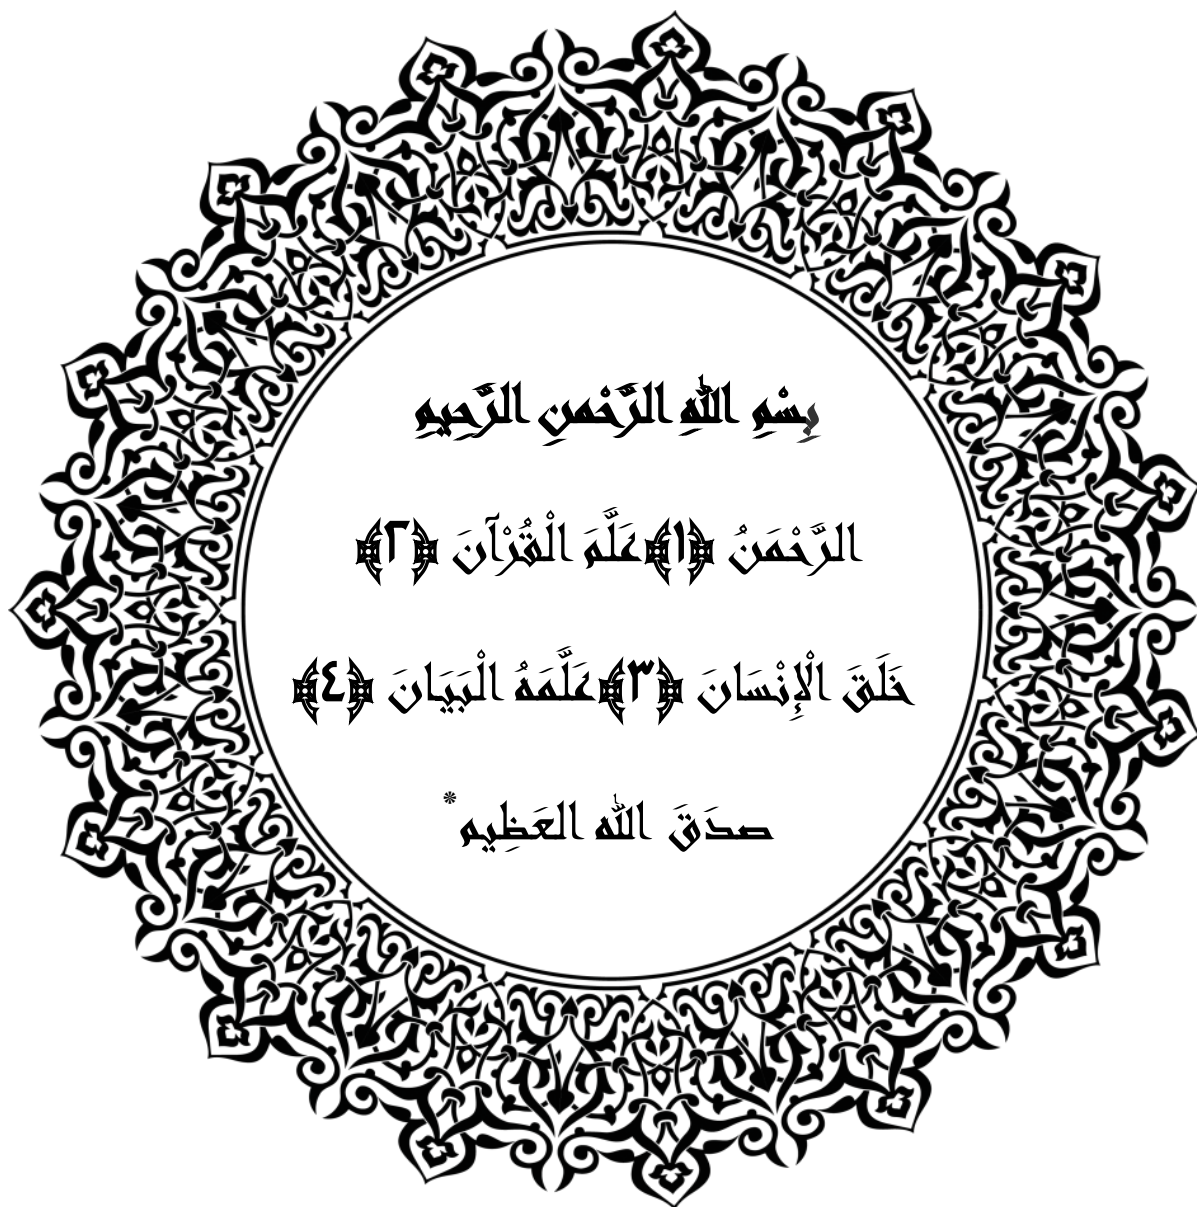 بِسْمِ اللَّهِ الرَّحْمنِ الرَّحِيمِ
الرَّحْمَنُ ﴿١﴾عَلَّمَ الْقُرْآنَ ﴿٢﴾
خَلَقَ الْإِنْسَانَ ﴿٣﴾عَلَّمَهُ الْبَيَانَ ﴿٤﴾
صدَقَ اللّٰه العَظِيم*